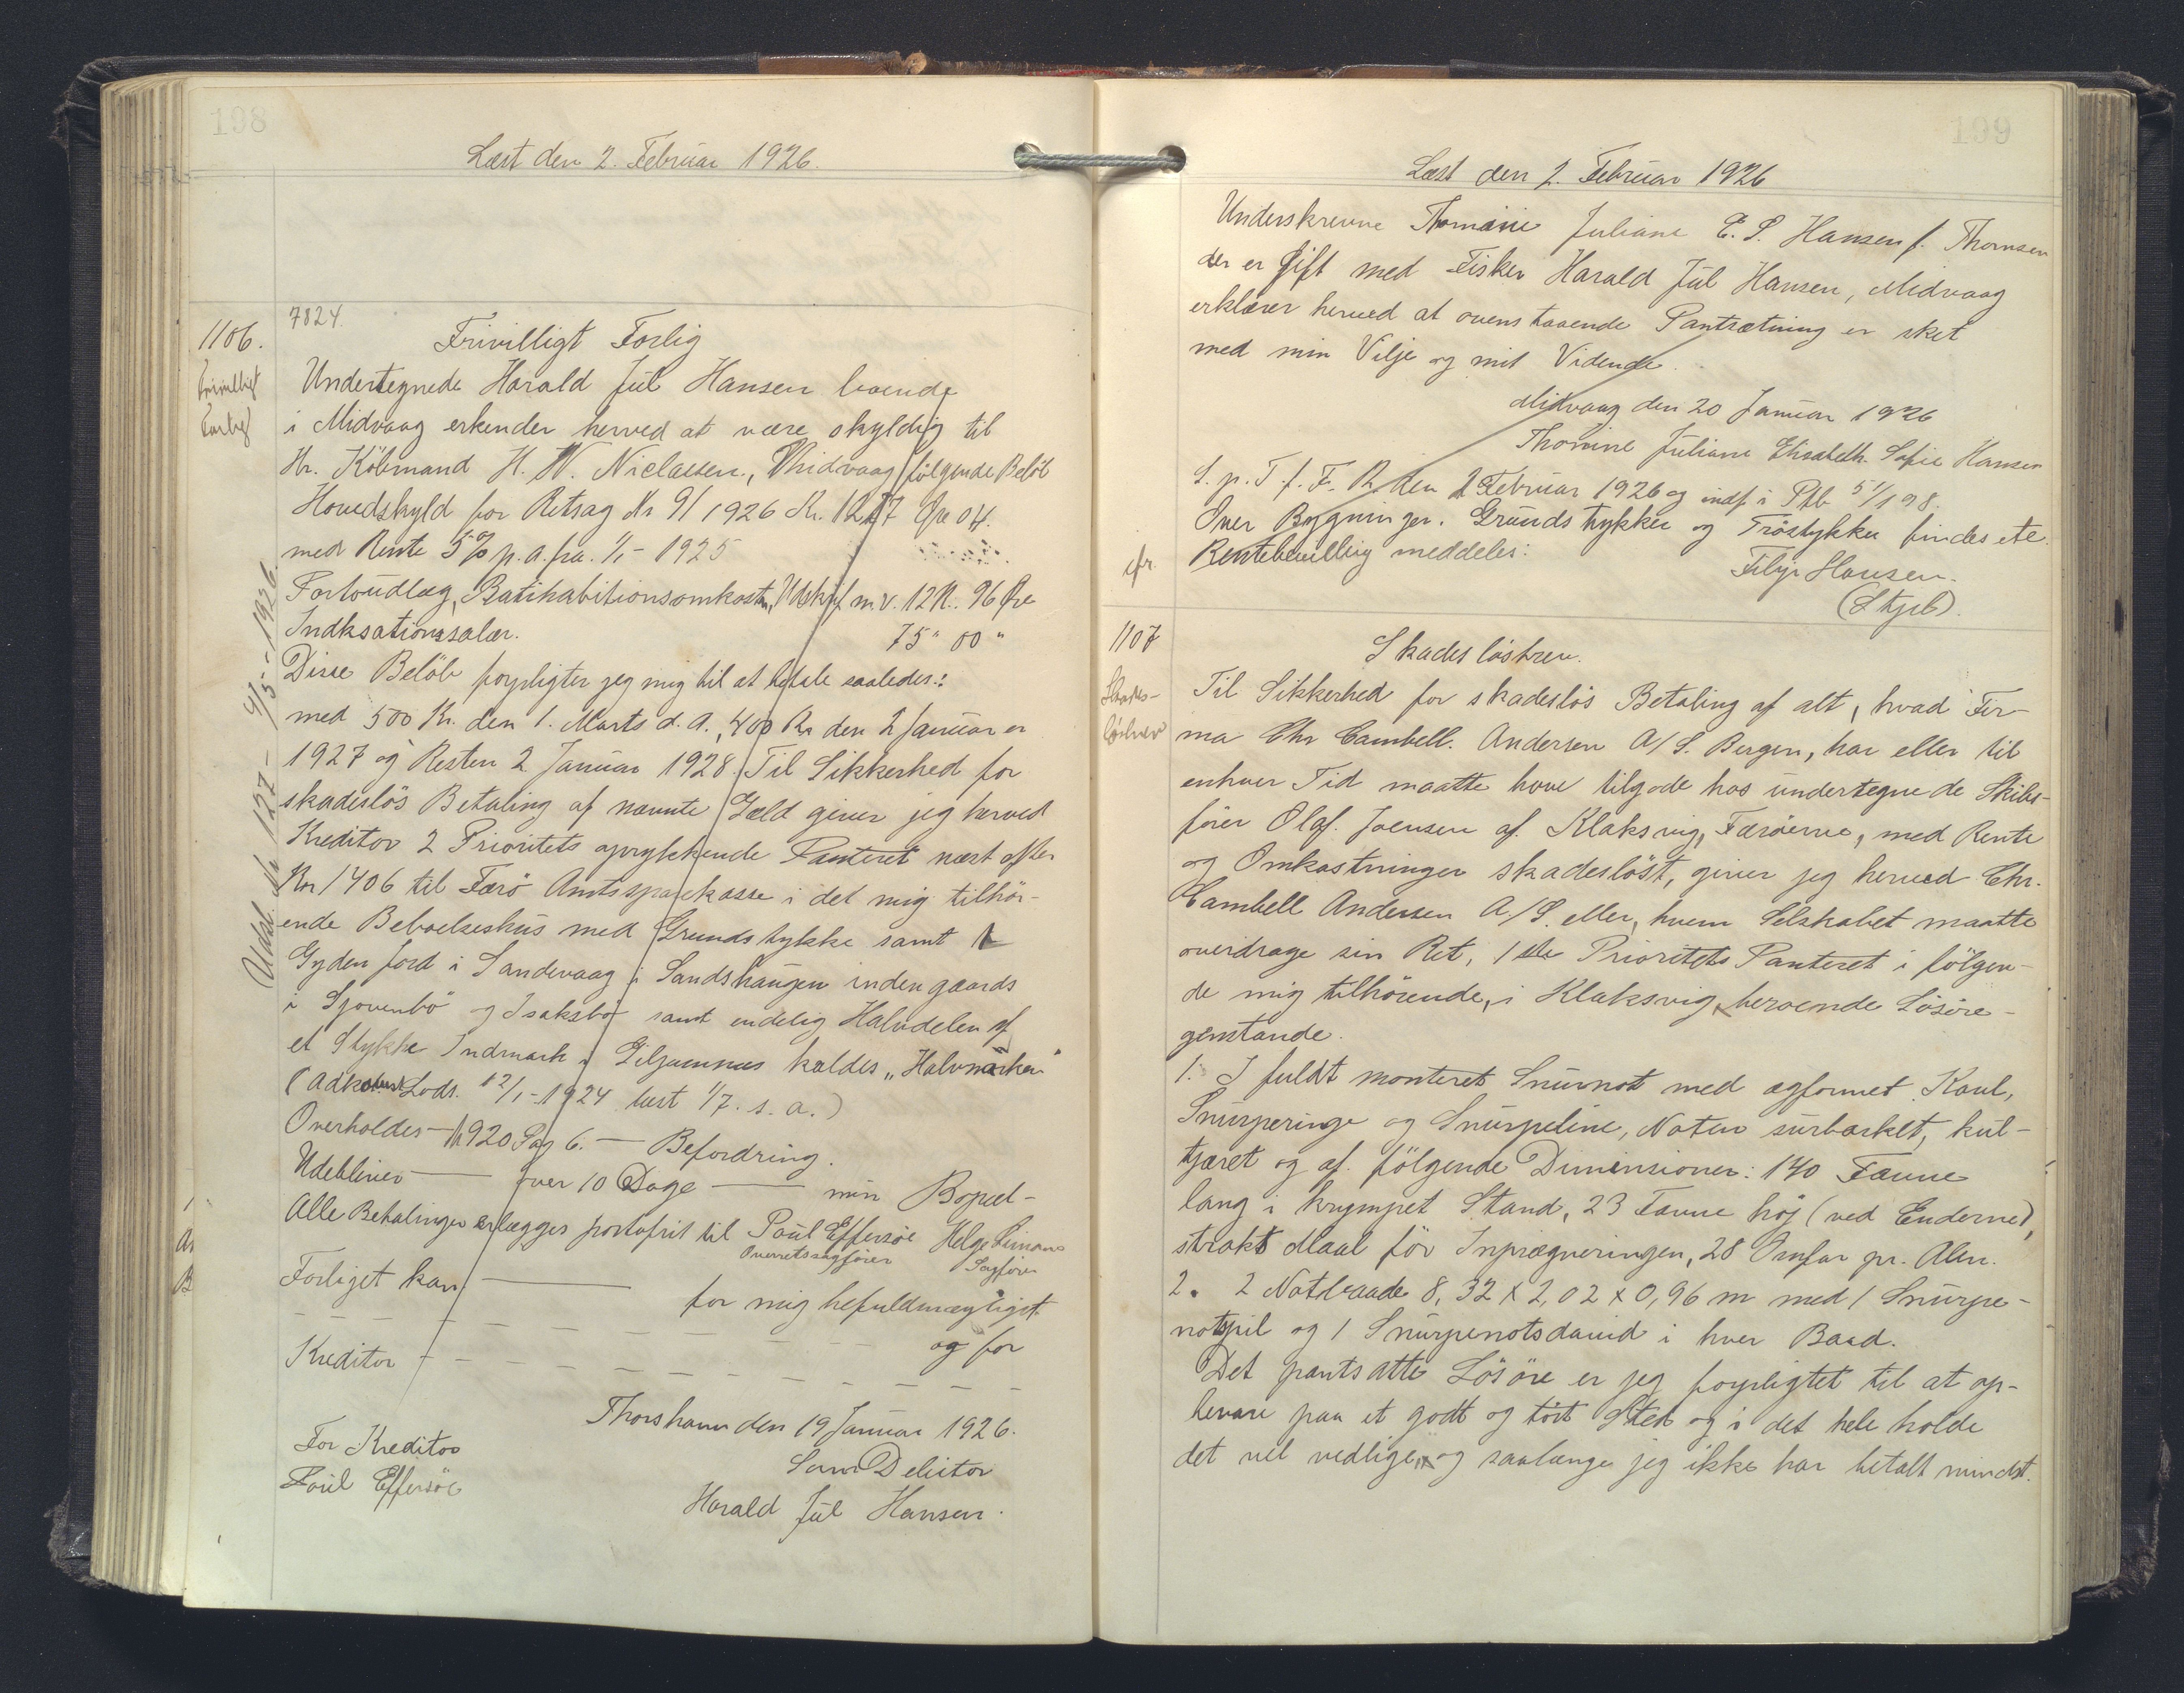 198
Læst den 2. Februar 1926.
7824
1106.
Frivilligt
Forlig
Frivilligt Forlig
Undertegnede Harald Jul Hansen boende
i Midvaag erkender herved at være skyldig til
Hr. Köbmand H. N. Niclassen, Midvaag følgende Beløb
Hovedskyld for Retsag Nr 9/1926 Kr. 1217 Øre 04.
med Rente 5% p.a. fra 1/1- 1925
Portoudlæg, Ratihabitionsomkostn, Udskrif m.v. 12 K. 96 Øre
Indksationssalær. 75 " 00 "
Disse Beløb forpligter jeg mig til at betale saaledes:
med 500 Kr. den 1. Marts d. A., 400 Kr den 2 Januar er
1927 og Resten 2 Januar 1928. Til Sikkerhed for
skadeslös Betaling af nævnte Gæld giver jeg herved
Kreditor 2 Prioritets oprykkende Panteret næst efter
Kr 1406 til Færö Amtssparekasse i det mig tilhör-
ende Beboelseshus med Grundstykke samt 1
Gyden Jord i Sandevaag i Sandshaugen indengaards
i Sjovenbö og Isaksbö samt endelig Halvdelen af
et Stykke Indmark i Giljumnes kaldes „Halvmarken"
( Adkomst Lods. 12/1-1924 læst 1/7. s. a.)
Overholdes — 1920 Pag 6. — Befordring.
Udebliver — over 10 Dage — min Bopæl-
Alle Betalinger erlægges portofrit til Poul Effersöe Helge
Overretssagfører Sagfører
Forliget kan — for mig befuldmægtiget.
Kreditor — og for
Thorshavn den 19 Januar 1926.
For Kreditor
Som Debitor
Poul Effersöe
Harald Jul Hansen.
Udsl. 127 - 4/5 - 1926.
199
Læst den 2. Februar 1926
Underskrevne Thomine Juliane E. S. Hansen f. Thomsen
der er gift med Fisker Harald Jul Hansen, Midvaag
erklærer herved at ovenstaaende Pantsætning er sket
med min Vilje og mit Vidende.
Midvaag den 20 Januar 1926
Thomine Juliane Elisabeth Sofie Hansen
L. p. T. f. F. R. den 2 Februar 1926 og indf i Ptb 51/198.
Over Bygninger. Grundstykker og Tröstykker findes ete.
cfr.
Rentebevilling meddeles:
Filip Hansen.
(Stpb).
1107
Skades-
lösbrev
Skadeslösbrev.
Til Sikkerhed for skadeslös Betaling af alt, hvad Fir-
ma Chr Cambell. Andersen A/S. Bergen, har eller til
enhver Tid maatte have tilgode hos undertegnede Skibs-
förer Olaf. Joensen af. Klaksvig, Færöerne, med Rente
og Omkostninger skadeslöst, giver jeg herved Chr.
Cambell Andersen A/S. eller, hvem Selskabet maatte
overdrage sin Ret, 1ste Prioritets Panteret i fölgen-
de mig tilhörende, i Klaksvig, beroende Lösöre-
genstande.
1. I fuldt monteret Snurnot med ægformet Kaul,
Snurperinge og Snurpeline, Noten surbarket, kul-
tjæret og af. fölgende Dimensioner: 140 Favne
lang i krympet Stand, 23 Favne höj (ved Enderne),
strakt Maal för Inprægneringen, 28 Omfar pr. Alen.
2. 2 Notbaade 8,32 x 2,02 x 0,96 m med 1 Snurpe-
notspil og 1 Snurpenotsdavid i hver Baad.
Det pantsatte Lösöre er jeg forpligtet til at op-
bevare paa et godt og tört Sted og i det hele holde
det vel vedlige, og saalænge jeg ikke har betalt mindst.